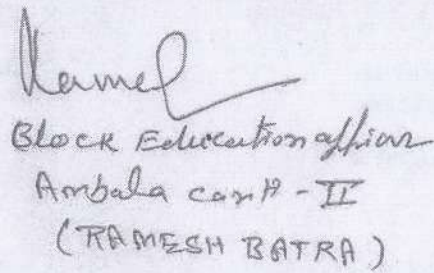 Ramesh
Block Education officer
Ambala cantt - II
(RAMESH BATRA)